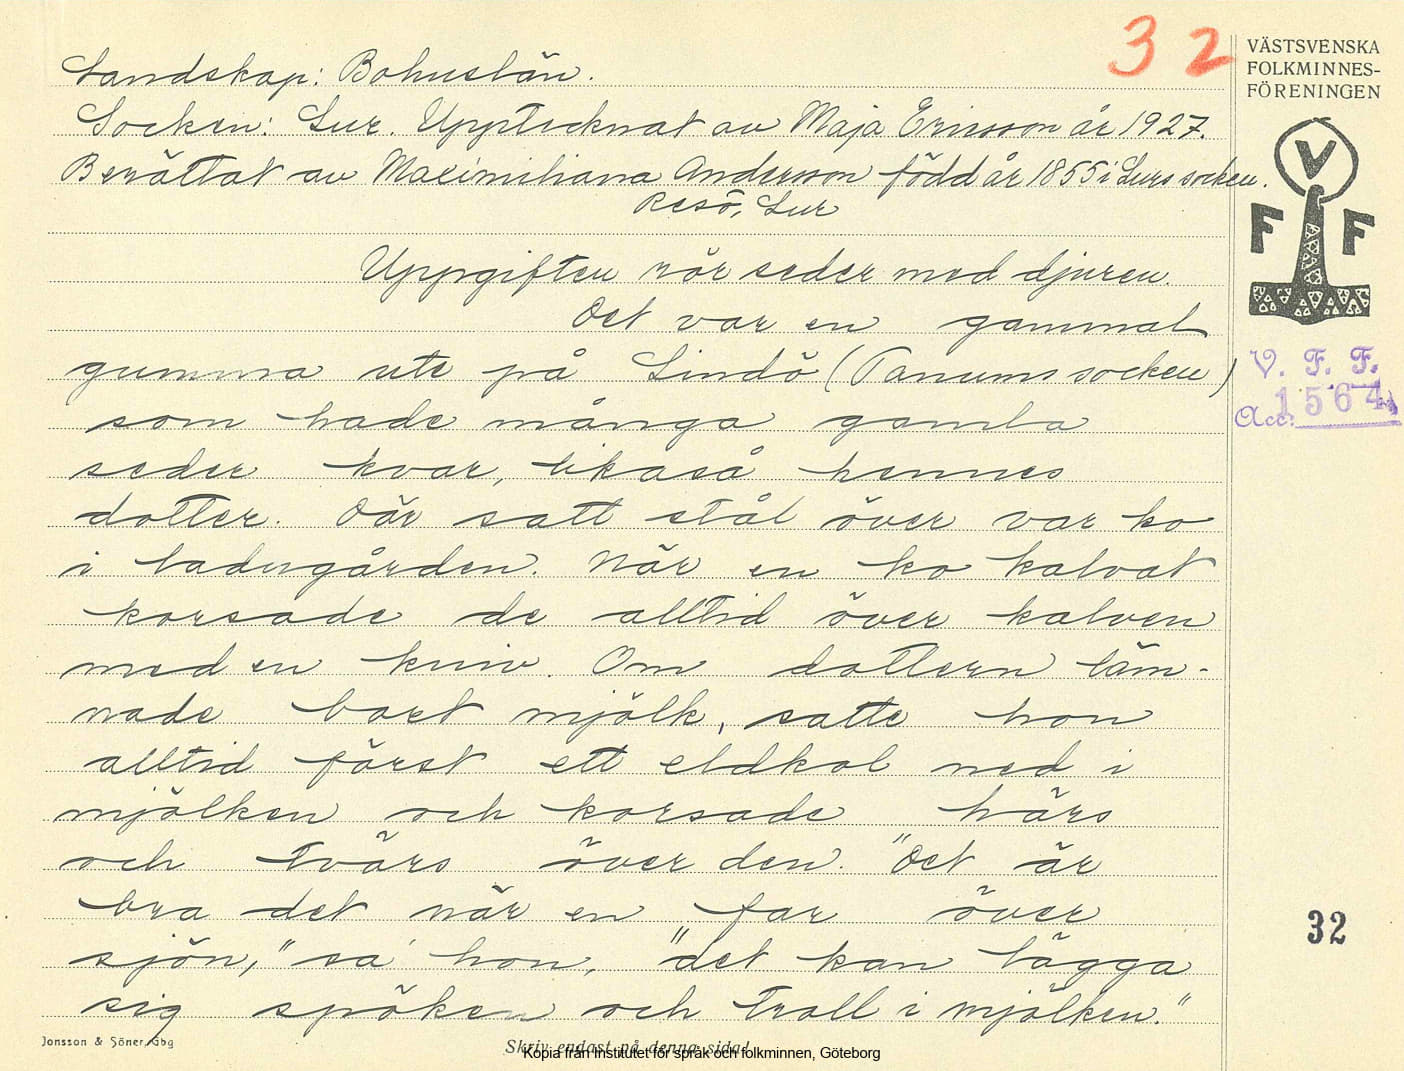 32
VÄSTSVENSKA
FOLKMINNES-
FÖRENINGEN
V
F F
V. F. F.
Acc: 1564
Landskap: Bohuslän.
Socken: Lur. Upptecknat av Maja Ericsson år 1927.
Berättat av Maximiliana Andersson född år 1855 i Lurs socken.
Resö, Lur
Uppgiften rör seder med djuren.
Det var en gammal
gumma ute på Lindö (Tanums socken)
som hade många gamla
seder kvar, likaså hennes
dotter. Där satt stål över var ko
i ladugården. När en ko kalvat
korsade de alltid över kalven
med en kniv. Om dottern läm-
nade bort mjölk, satte hon
alltid först ett eldkol ned i
mjölken och korsade härs
och tvärs över den. "Det är
bra det när en far över
sjön," sa hon, "det kan lägga
sig spöken och troll i mjölken."
32
Jonsson & Söner, Gbg
Skriv endast på denna sida!
Kopia från Institutet för språk och folkminnen, Göteborg